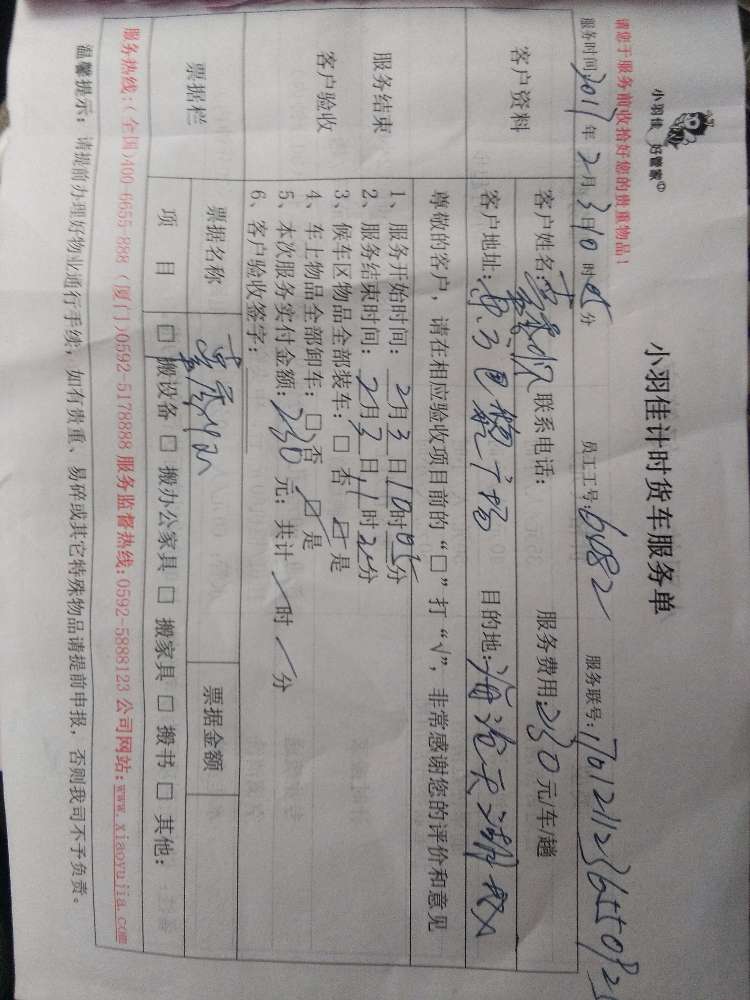 小羽佳 好管家
小羽佳计时货车服务单
请您于服务前收拾好您的贵重物品!
服务时间 2017年2月3日10时05分 员工工号:6082 服务联号:
客户资料
客户姓名: 联系电话: 服务费用:230元/车/趟
客户地址: 目的地:海沧天湖城
尊敬的客户,请在相应验收项目前的“□”打“√”,非常感谢您的评价和意见
服务结束
客户验收
1、服务开始时间: 2月3日10时05分
2、服务结束时间: 2月3日11时 分
3、候车区物品全部装车: □ 否 ☑ 是
4、车上物品全部卸车: □ 否 ☑ 是
5、本次服务实付金额: 230 元; 共计 时 分
6、客户验收签字:
票据栏
票据名称 票据金额
项 目 □ 搬设备 □ 搬办公家具 □ 搬家具 □ 搬书 □ 其他:
服务热线:(全国)400-6655-888 (厦门)0592-5178888 服务监督热线:0592-5888123 公司网站:www.xiaoyujia.com
温馨提示: 请提前办理好物业通行手续; 如有贵重、易碎或其它特殊物品请提前申报, 否则我司不予负责。